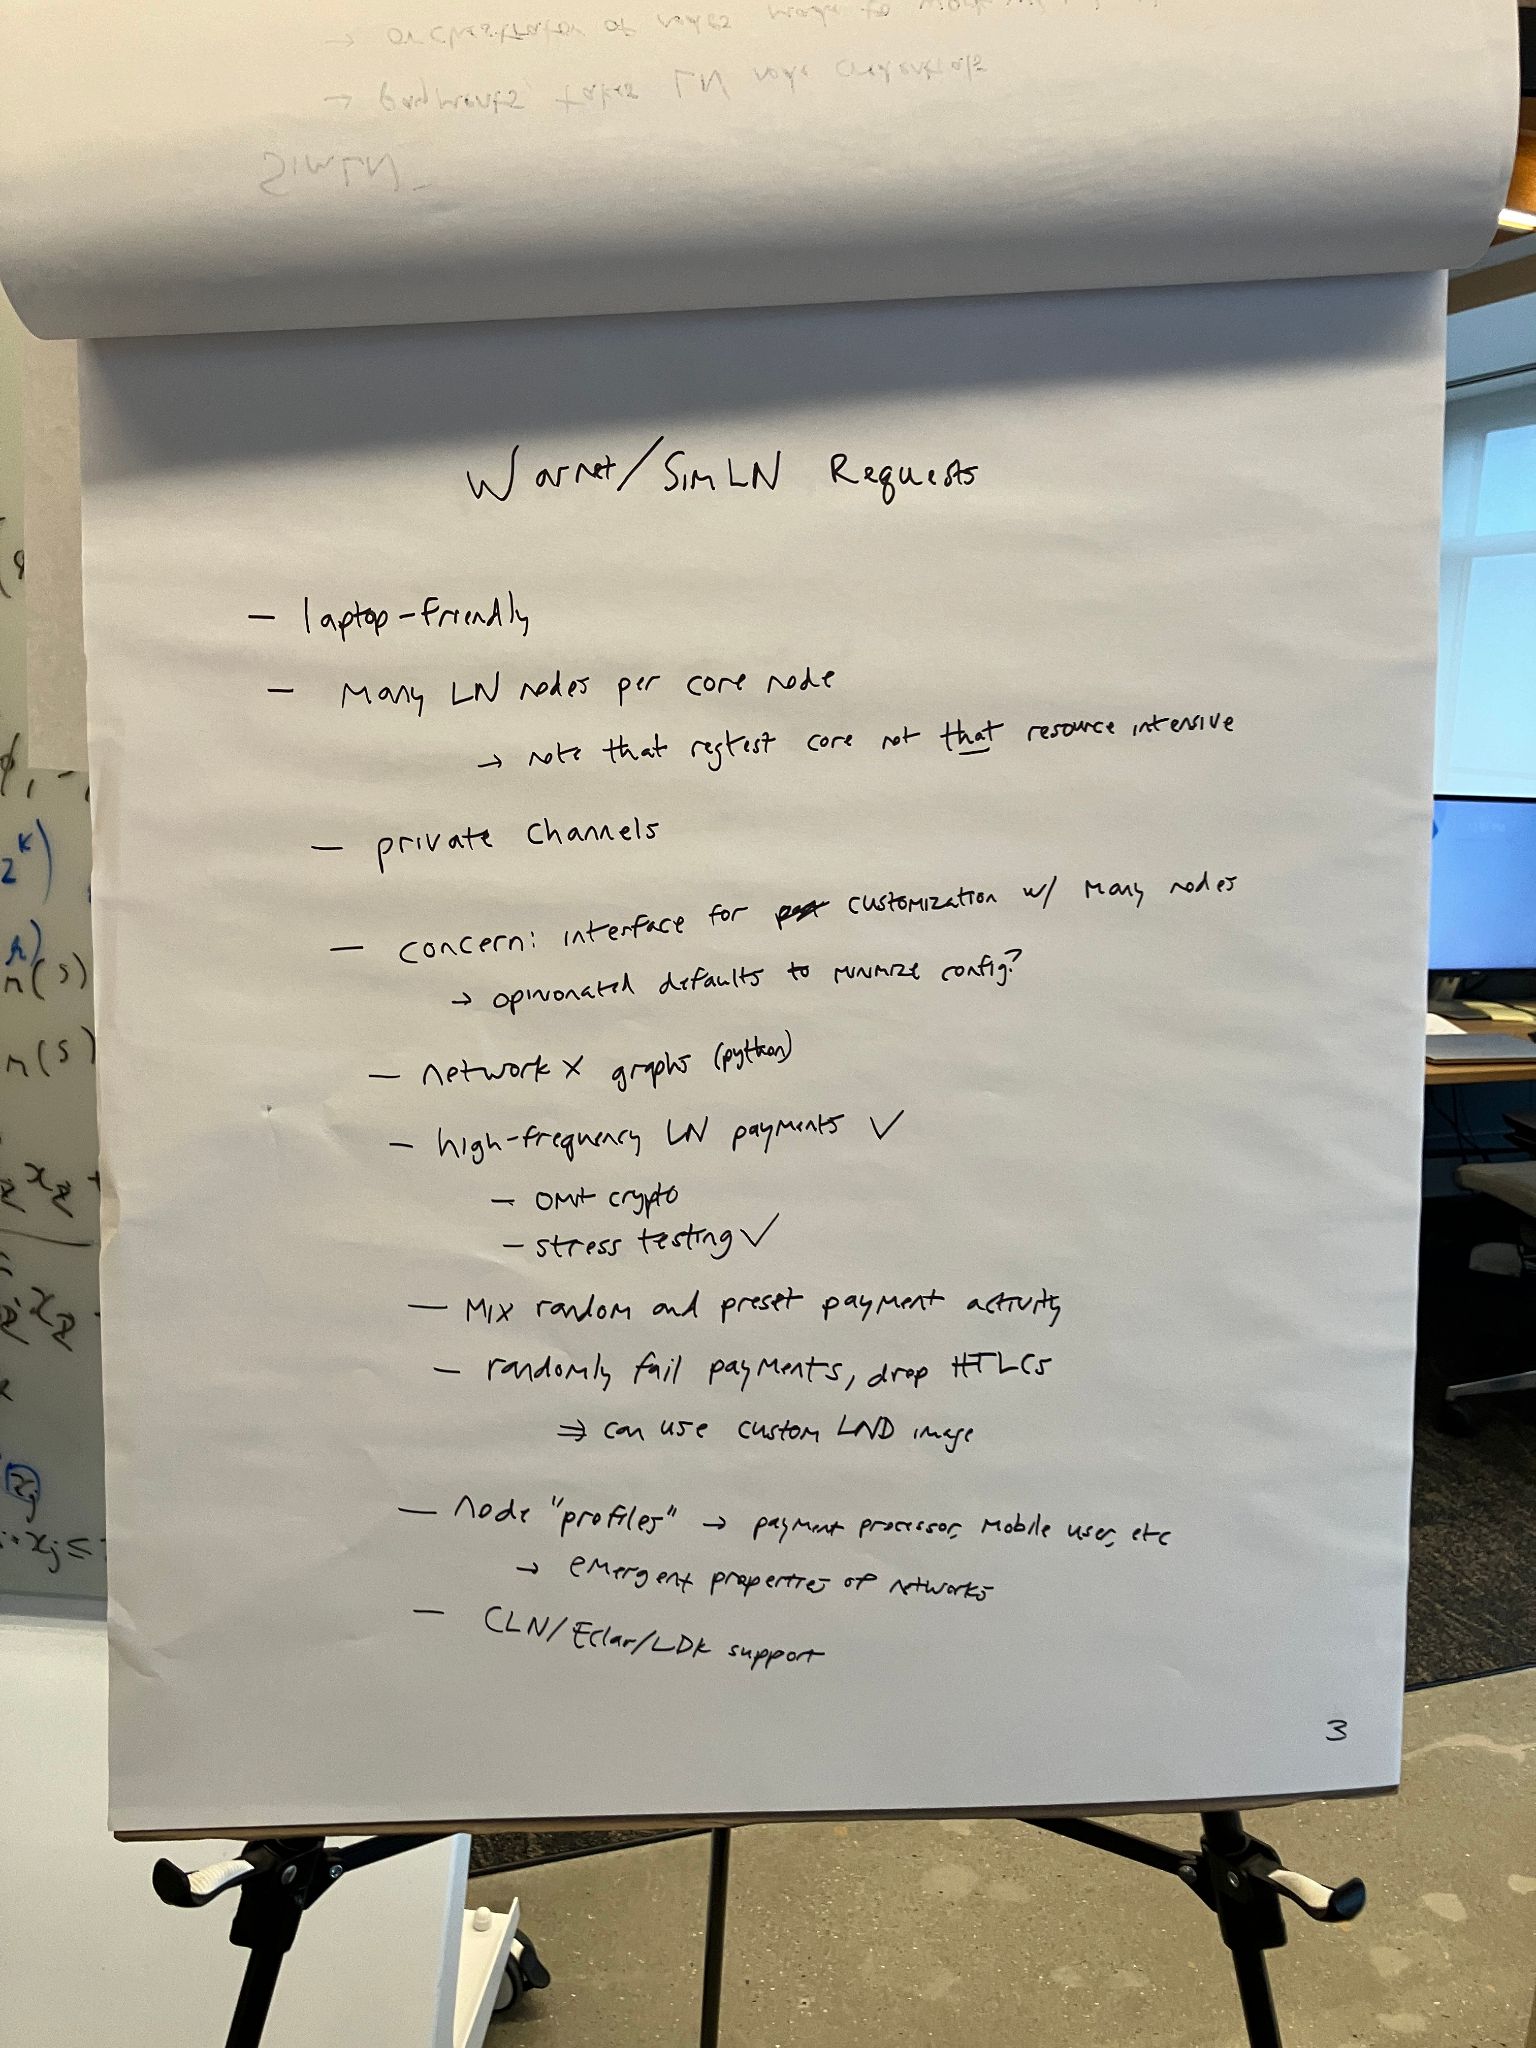 → orchestrator of nodes made to
→ payments takes LN node credentials
SimLN
Warnet/SimLN Requests
— laptop-friendly
— Many LN nodes per core node
→ note that regtest core not that resource intensive
— private channels
— concern: interface for customization w/ many nodes
→ opinionated defaults to minimize config?
— network x graphs (python)
— high-frequency LN payments ✓
— omit crypto
— stress testing ✓
— Mix random and preset payment activity
— randomly fail payments, drop HTLCs
⇒ can use custom LND image
— Node "profiles" → payment processor, mobile user, etc
→ emergent properties of networks
— CLN/Eclar/LDK support
3
2^k)
n(s)
n(s)